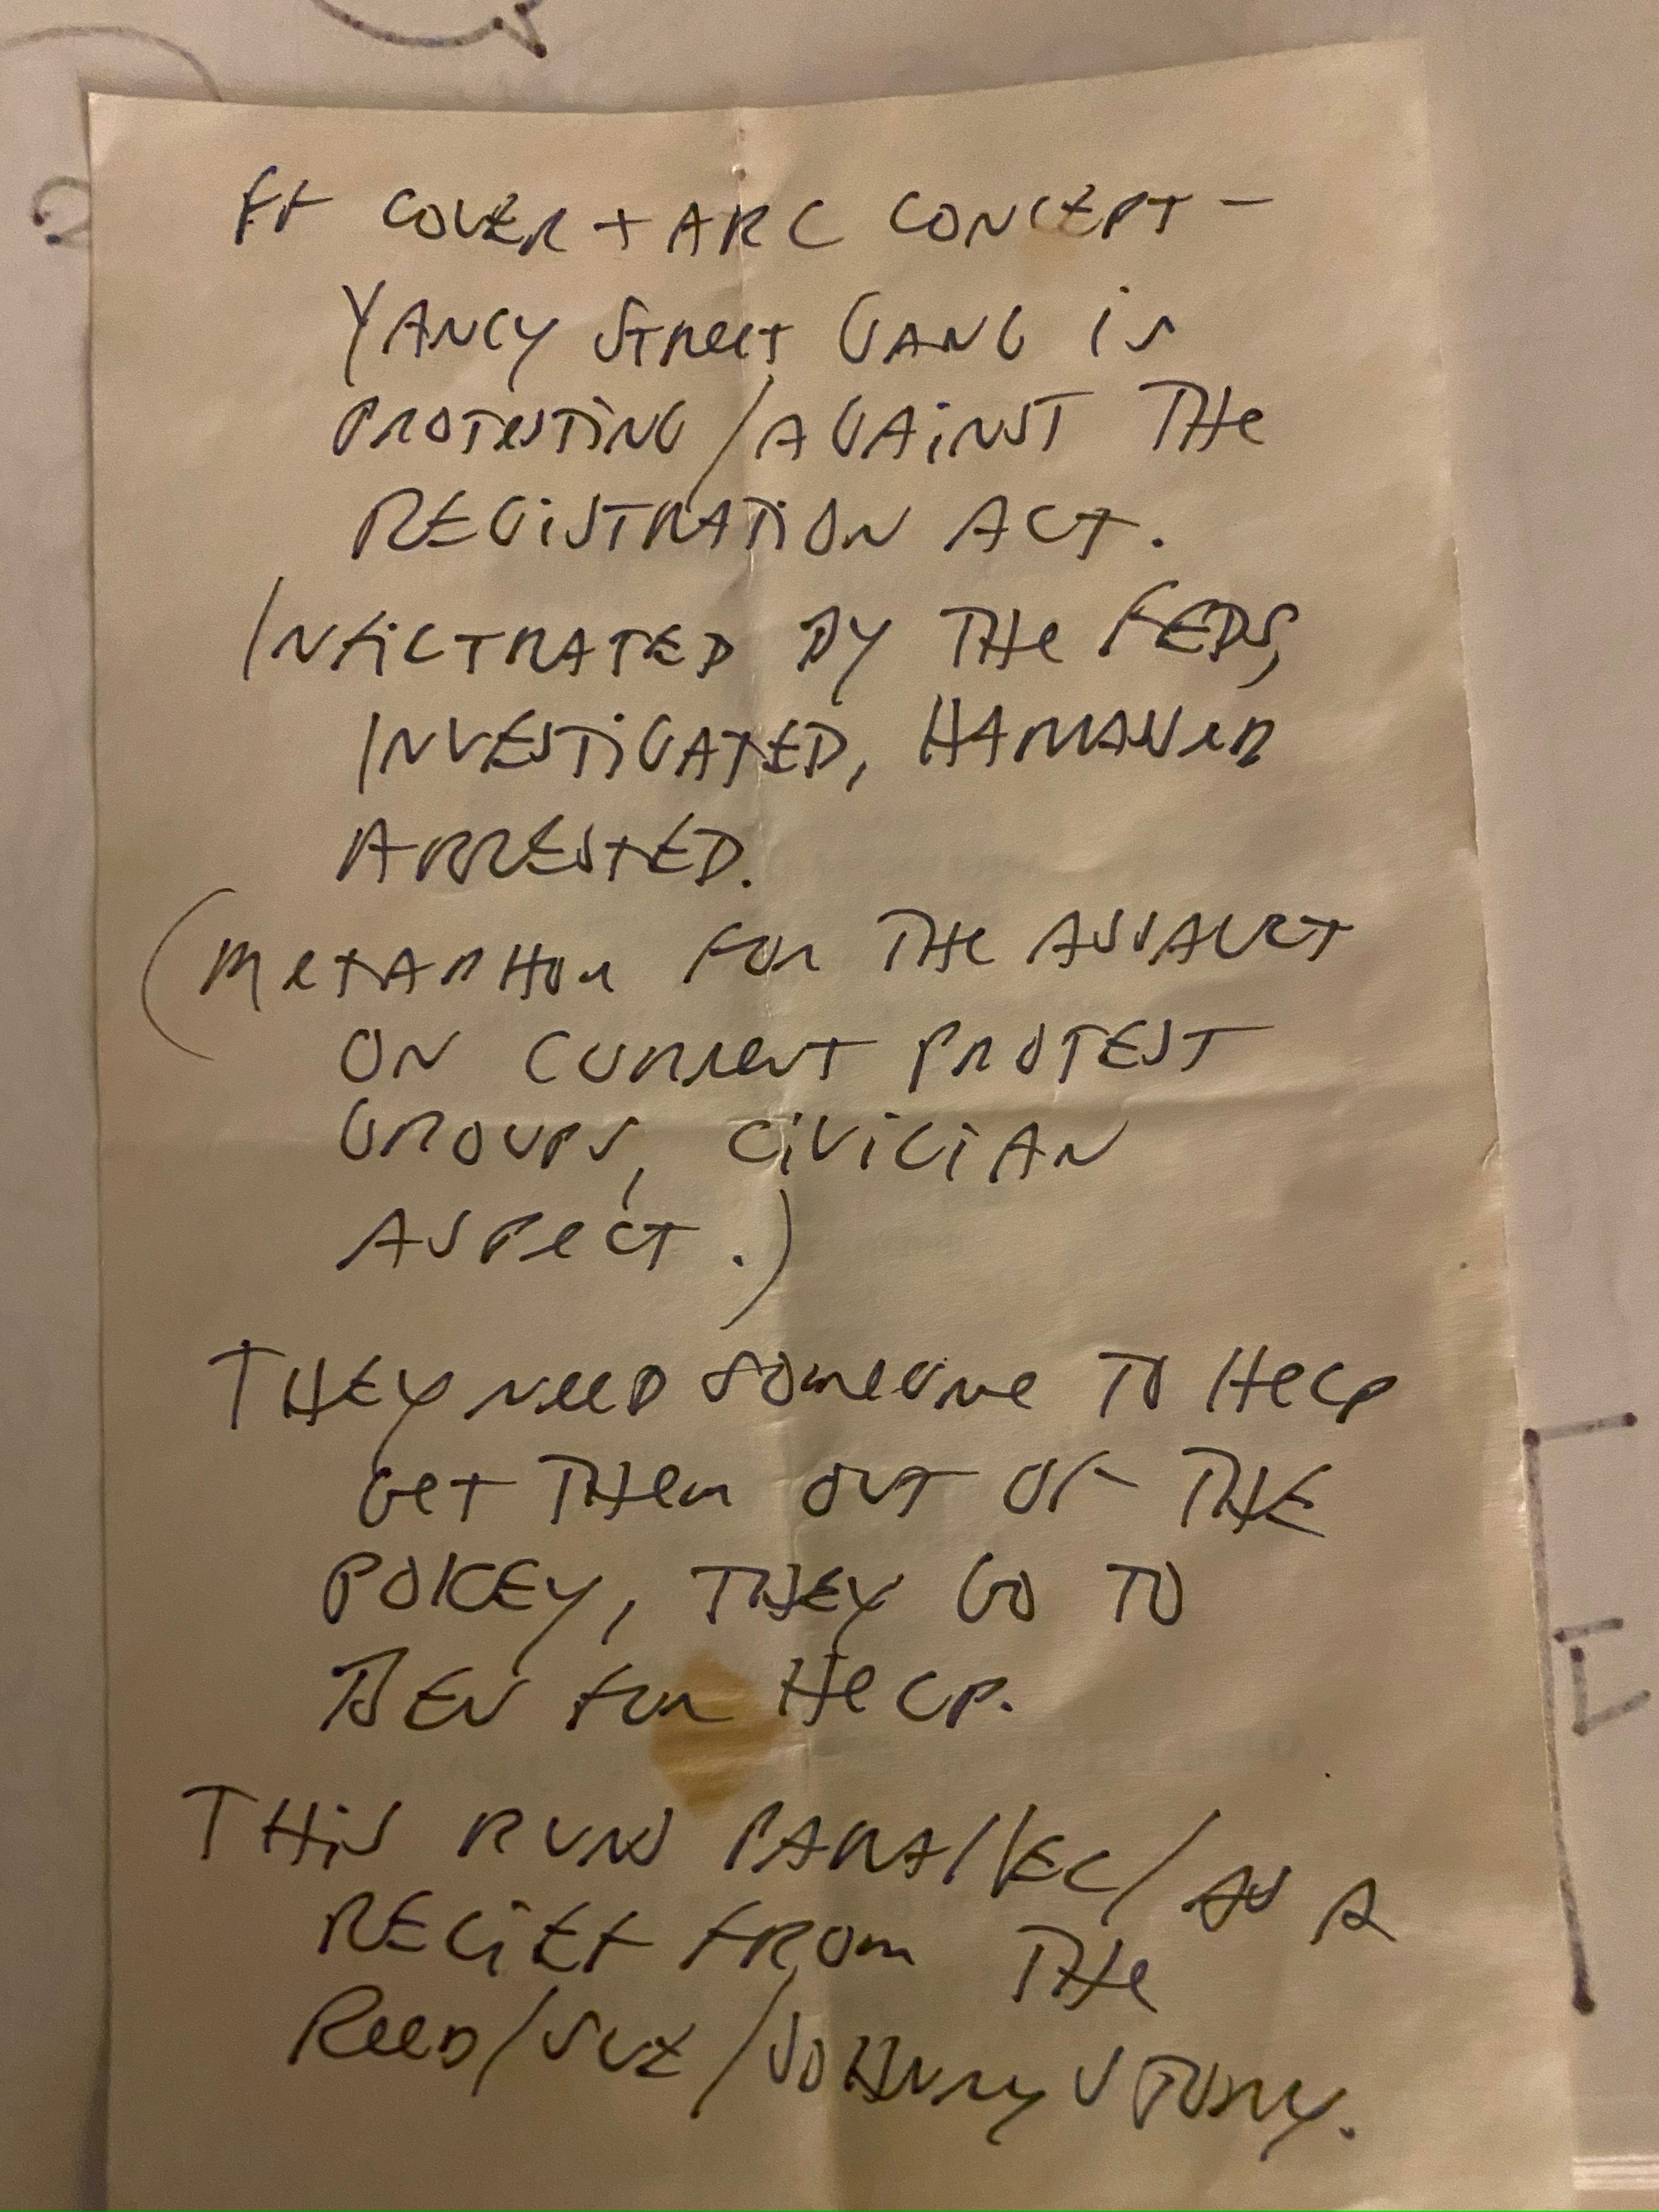 FF COVER + ARC CONCEPT -
YANCY STREET GANG IS
PROTESTING / AGAINST THE
REGISTRATION ACT.
INFILTRATED BY THE FEDS,
INVESTIGATED, HARASSED
ARRESTED.
(METAPHOR FOR THE ASSAULT
ON CURRENT PROTEST
GROUPS, CIVILIAN
ASPECT.)
THEY NEED SOMEONE TO HELP
GET THEM OUT OF THE
POKEY, THEY GO TO
BEN FOR HELP.
THIS RUNS PARALLEL / AS A
RELIEF FROM THE
REED/SUE/JOHNNY STORY.